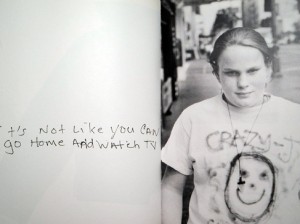 It's Not Like You CAN
go Home AND WAtch TV
CRAZY-J